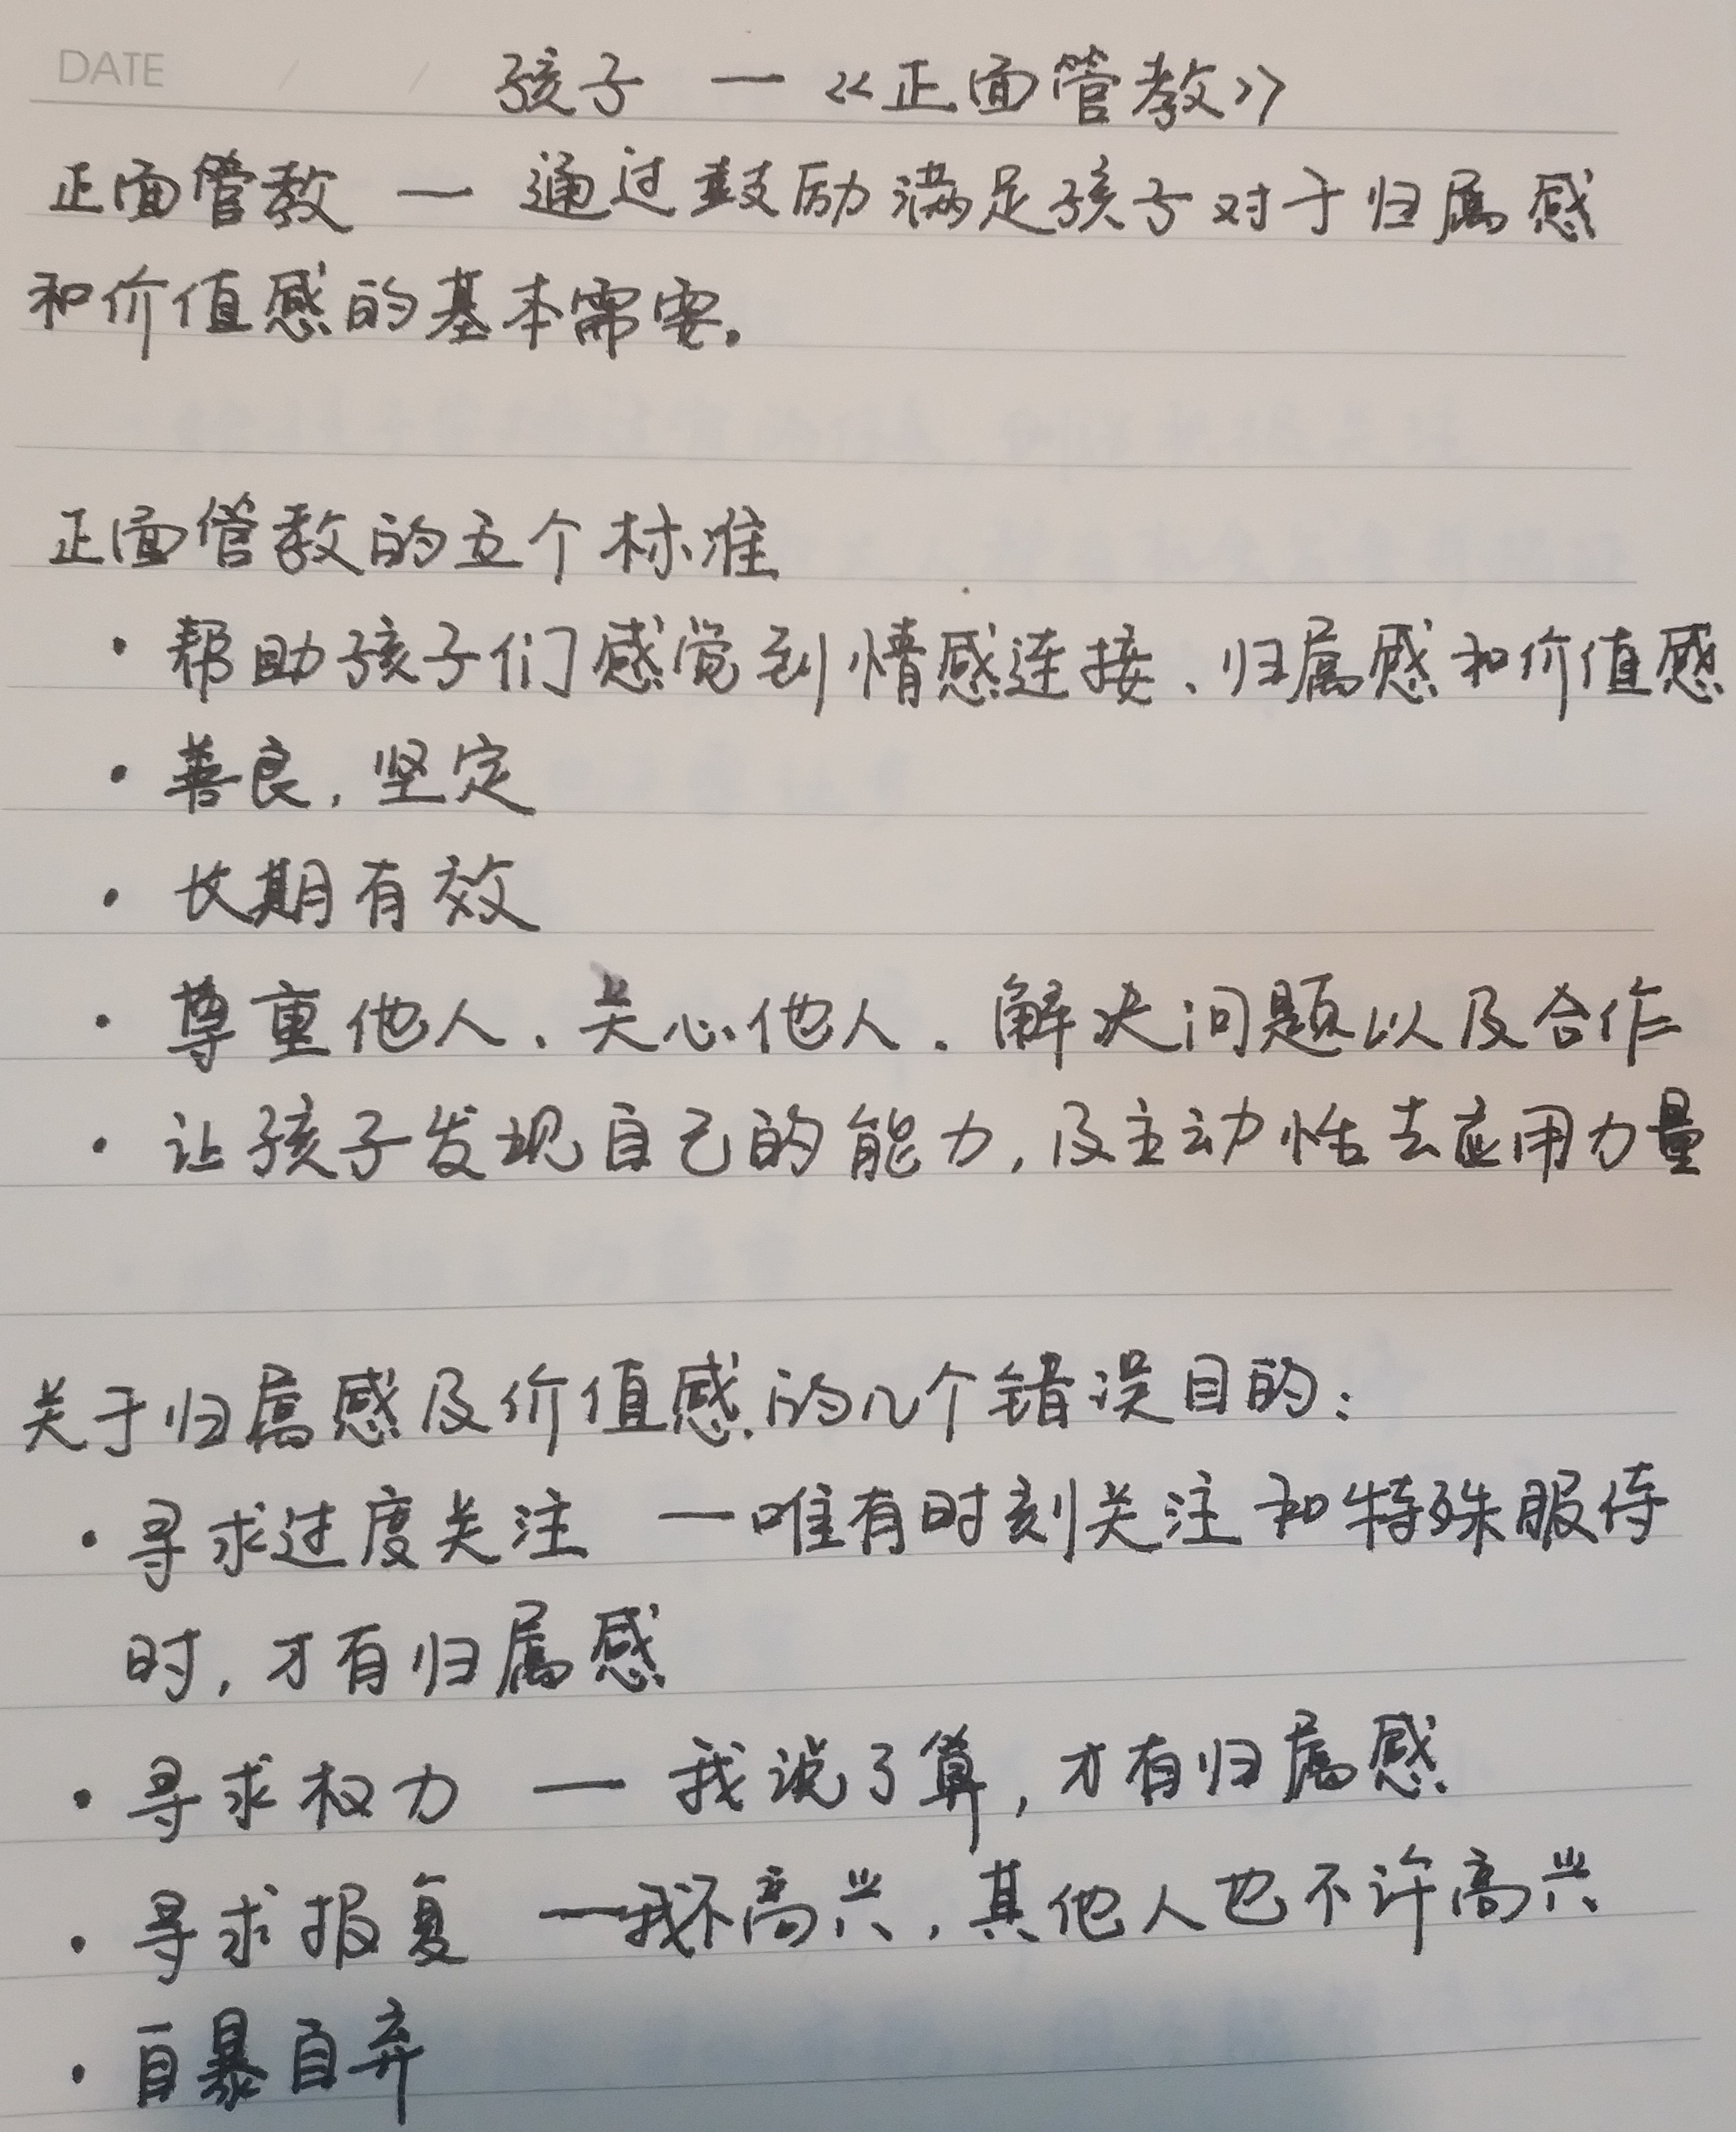 DATE / /
孩子 — 《正面管教》
正面管教 — 通过鼓励满足孩子对于归属感
和价值感的基本需要。
正面管教的五个标准
· 帮助孩子们感觉到情感连接、归属感和价值感
· 善良，坚定
· 长期有效
· 尊重他人、关心他人、解决问题以及合作
· 让孩子发现自己的能力，及主动性去应用力量
关于归属感及价值感的几个错误目的：
· 寻求过度关注 —唯有时刻关注和特殊服侍
时，才有归属感
· 寻求权力 — 我说了算，才有归属感
· 寻求报复 —我不高兴，其他人也不许高兴
· 自暴自弃